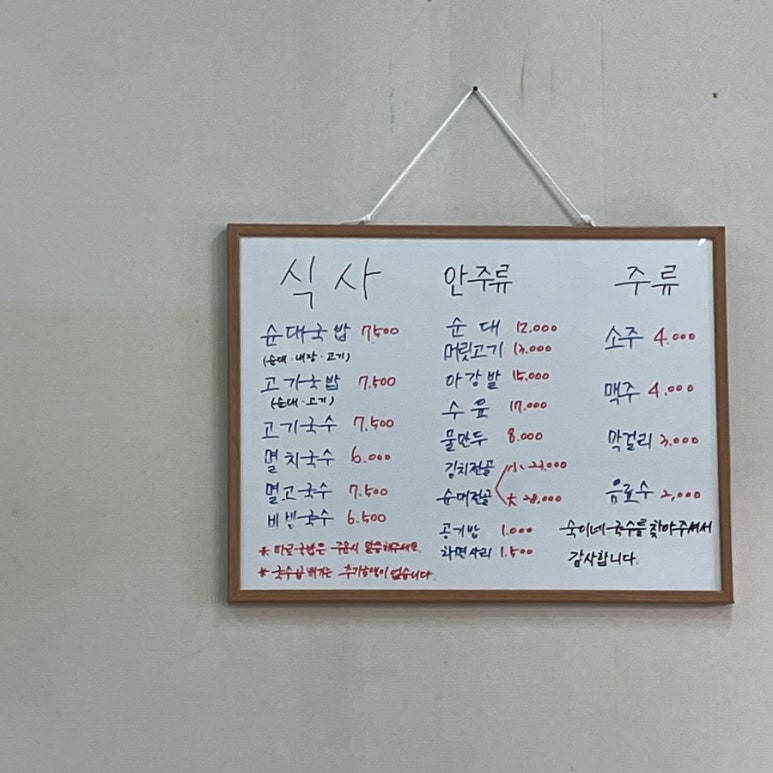 식사
순대국밥 7,500
(순대·내장·고기)
고기국밥 7,500
(순대·고기)
고기국수 7,500
멸치국수 6.000
멸고국수 7,500
비빔국수 6.500
* 따로국밥은 주문시 말씀해주세요.
* 국수곱빼기는 추가금액이 없습니다.
안주류
순대 12.000
머릿고기 13.000
아강발 15,000
수육 17.000
물만두 8.000
김치전골
순대전골
小 23,000
大 28,000
공기밥 1.000
라면사리 1.500
주류
소주 4.000
맥주 4.000
막걸리 3,000
음료수 2,000
숙이네 국수를 찾아주셔서
감사합니다.